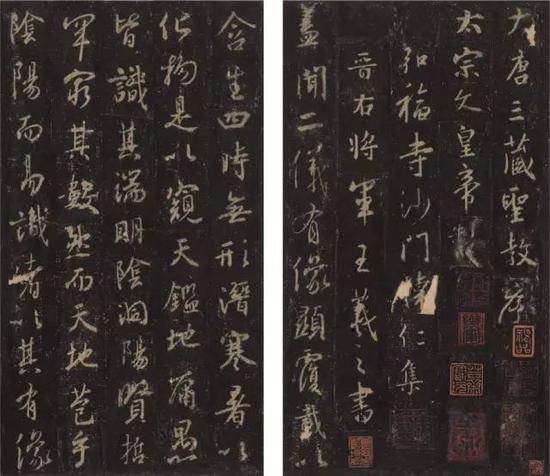 大唐三藏聖教序
太宗文皇帝
弘福寺沙門懷仁集
晉右將軍王羲之書
蓋聞二儀有像顯覆載以
含生四時無形潛寒暑以
化物是以窺天鑑地庸愚
皆識其端明陰洞陽賢哲
罕窮其數然而天地苞乎
陰陽而易識者以其有像